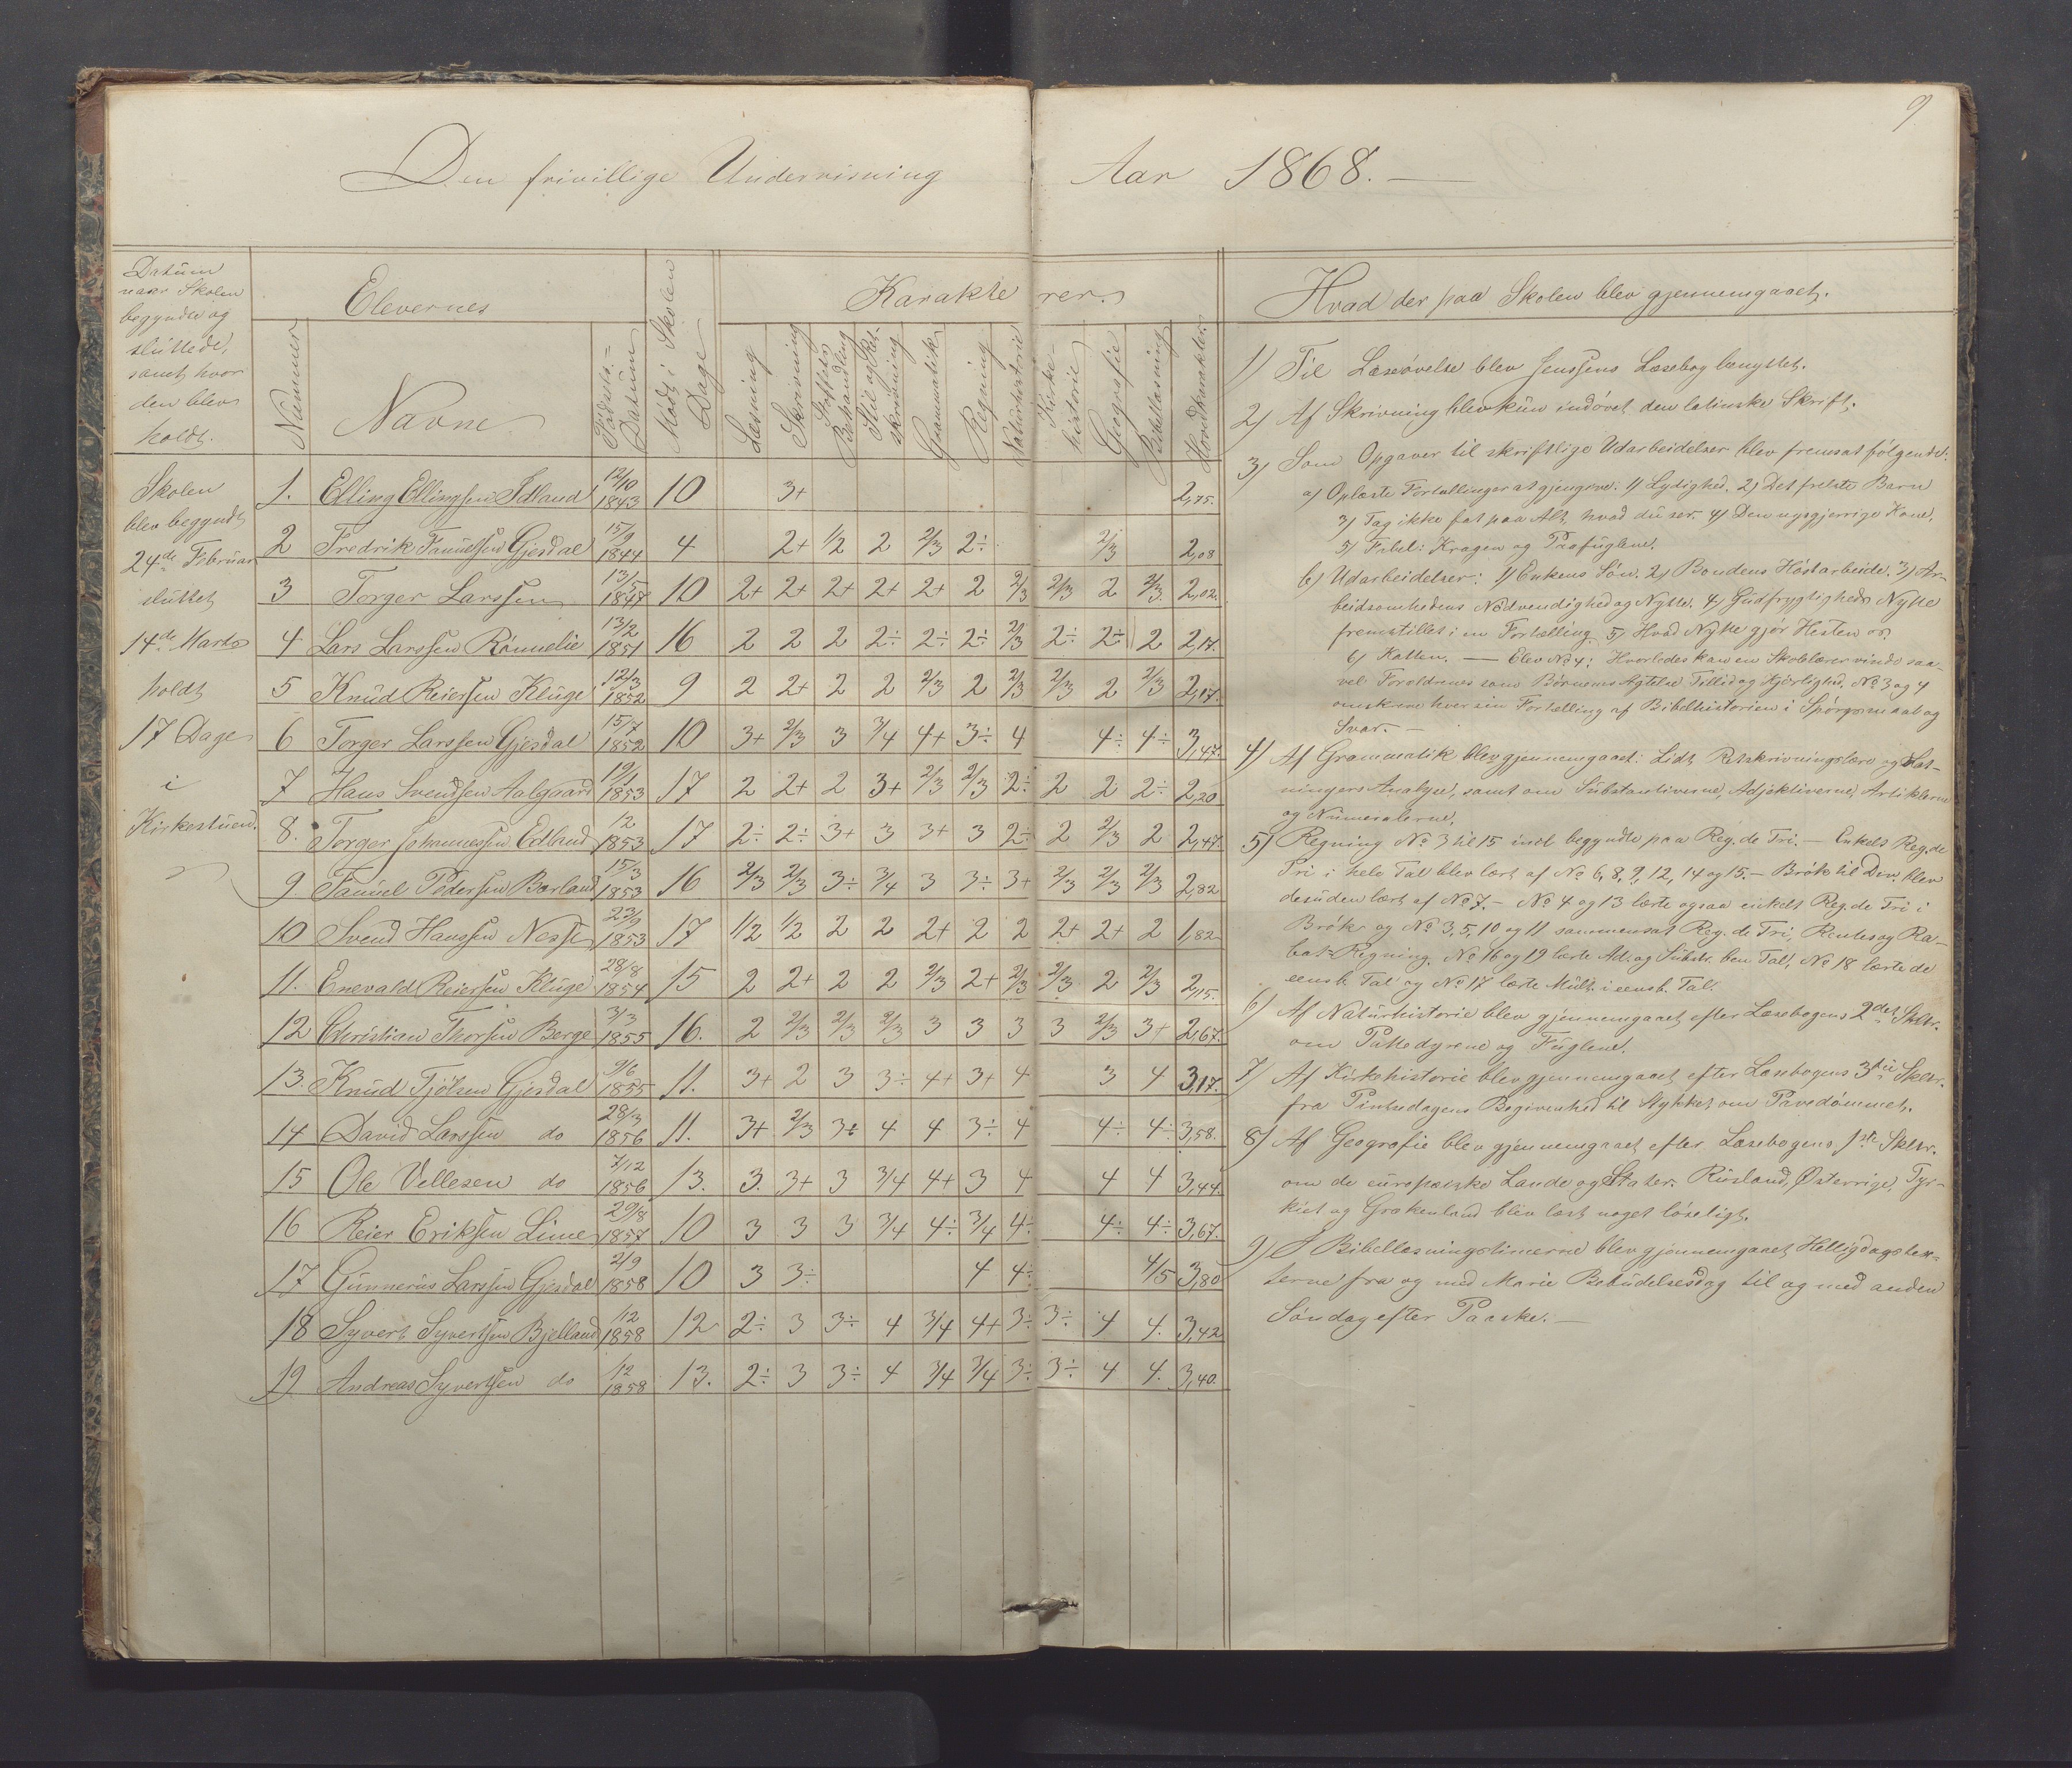 9
Den frivillige Undervisning Aar 1868. —
Datum
naar Skolen
begyndte og
sluttede,
samt hvor
den blev
holdt.
Elevernes
Nummer
Navne
Födsels-
Datum
Mödt i Skolen
Dage
Karakterer.
Læsning
Skrivning
Stoffets
Behandling
Stil og Ret-
skrivning
Grammatik
Regning
Naturhistorie
Kirke-
historie
Geografie
Bibellæsning
Hovedkarakter.
Hvad der paa Skolen blev gjennemgaaet.
Skolen
blev begyndt
24de Februar
sluttet
14de Marts
holdt
17 Dage
i
Kirkestuen.
1. Elling Ellingsen Idland 12/10 1843 10 3+ 2,75.
2 Fredrik Samuelsen Gjesdal 15/9 1844 4 2+ 1/2 2 2/3 2÷ 2/3 2,08
3 Torger Larssen 13/5 1847 10 2+ 2+ 2+ 2+ 2+ 2 2/3 2/3 2 2/3 2,02.
4 Lars Larssen Rönnelie 13/2 1851 16 2 2 2 2÷ 2÷ 2÷ 2/3 2÷ 2÷ 2 2,17.
5 Knud Reiersen Kluge 12/3 1852 9 2 2+ 2 2 2/3 2 2/3 2/3 2 2/3 2,17.
6 Torger Larssen Gjesdal 15/7 1852 10 3+ 2/3 3 3/4 4+ 3÷ 4 4÷ 4÷ 3,47.
7 Hans Svendsen Aalgaard 19/1 1853 17 2 2+ 2 3+ 2/3 2/3 2÷ 2 2 2÷ 2,20
8. Torger Johannessen Edland 12 1853 17 2÷ 2÷ 3+ 3 3+ 3 2÷ 2 2/3 2 2,47.
9. Samuel Pedersen Bærland 15/3 1853 16 2/3 2/3 3÷ 3/4 3 3÷ 3+ 2/3 2/3 2/3 2,82
10 Svend Hanssen Nesse 23/9 1853 17 1/2 1/2 2 2 2+ 2 2 2+ 2+ 2 1,82
11. Enevald Reiersen Kluge 28/8 1854 15 2 2+ 2 2 2/3 2+ 2/3 2/3 2 2/3 2,15.
12 Christian Thorsen Berge 3/3 1855 16. 2 2/3 2/3 2/3 3 3 3 3 2/3 3+ 2,67.
13. Knud Tjölsen Gjesdal 9/6 1855 11. 3+ 2 3 3÷ 4+ 3+ 4 3 4 3,17.
14 David Larssen do 28/3 1856 11. 3+ 2/3 3+ 4 4 3÷ 4 4÷ 4÷ 3,58.
15 Ole Vellesen do 7/12 1856 13. 3. 3+ 3 3/4 4+ 3 4 4 4 3,44.
16 Reier Eriksen Lime 29/8 1857 10 3 3 3 3/4 4÷ 3/4 4÷ 4÷ 4÷ 3,67.
17 Gunnerius Larssen Gjesdal 2/9 1858 10 3 3÷ 4 4÷ 4/5 3,80
18 Syvert Syvertsen Bjelland 12 1858 12 2÷ 3 3÷ 4 3/4 4+ 3÷ 3÷ 4 4. 3,42
19. Andreas Syvertsen do 12 1858 13. 2÷ 3 3÷ 4 3/4 3/4 3÷ 3÷ 4 4. 3,40.
1) Til Læseövelse blev Jenssens Læsebog benyttet.
2) Af Skrivning blev kun indövet den latinske Skrift.
3) Som Opgaver til skriftlige Udarbeidelser blev fremsat fölgende:
a) Oplæste Fortællinger at gjengive. 1) Lydighed. 2) Det frelste Barn
3) Tag ikke fat paa Alt, hvad du ser. 4) Den nysgjerrige Kone.
5) Fabel: Kragen og Paafuglene.
b) Udarbeidelser: 1) Enkens Sön. 2) Bondens Höstarbeide. 3) Ar-
beidsomhedens Nödvendighed og Nytte. 4) Gudfrygtigheds Nytte
fremstillet i en Fortælling. 5) Hvad Nytte gjör Hesten os.
6) Katten. — Elev No 4: Hvorledes kan en Skolelærer vinde saa-
vel Forældrenes som Börnenes Agtelse Tillid og Kjærlighed. No 3 og 4
omskrev hver sin Fortelling af Bibelhistorien i Spörgsmaal og
Svar. —
4) Af Grammatik blev gjennemgaaet: Lidt Retskrivningslære og Sæt-
ningers Analyse, samt om Substantiverne, Adjektiverne, Artiklerne
og Numeralerne.
5) Regning No 3 til 15 incl. begyndte paa Reg. de Tri. — Enkelt Reg. de
Tri i hele Tal blev lært af No 6, 8, 9, 12, 14 og 15. — Brök til Div. blev
desuden lært af No 7. — No 4 og 13 lærte ogsaa enkelt Reg. de Tri i
Brök og No 3, 5, 10 og 11 sammensat Reg. de Tri, Rentes og Ra-
bat Regning. No 16 og 19 lærte Ad. og Subtr. ben. Tal, No 18 lærte de
eensb. Tal og No 17 lærte Mult. i eensb. Tal.
6) Af Naturhistorie blev gjennemgaaet efter Læsebogens 2det Skltr.
om Pattedyrene og Fuglene.
7) Af Kirkehistorie blev gjennemgaaet efter Læsebogens 3die Skltr.
fra Pintsedagens Begivenhed til Stykket om Pavedömmet.
8) Af Geografie blev gjennemgaaet efter Læsebogens 1ste Skltr.
om de europæiske Lande og Stater. Rusland, Østerrige, Tyr-
kiet og Grækenland blev læst noget löseligt.
9) I Bibellæsningstimerne blev gjennemgaaet Helligdagstex-
terne fra og med Marie Bebudelsesdag til og med anden
Söndag efter Paaske. —